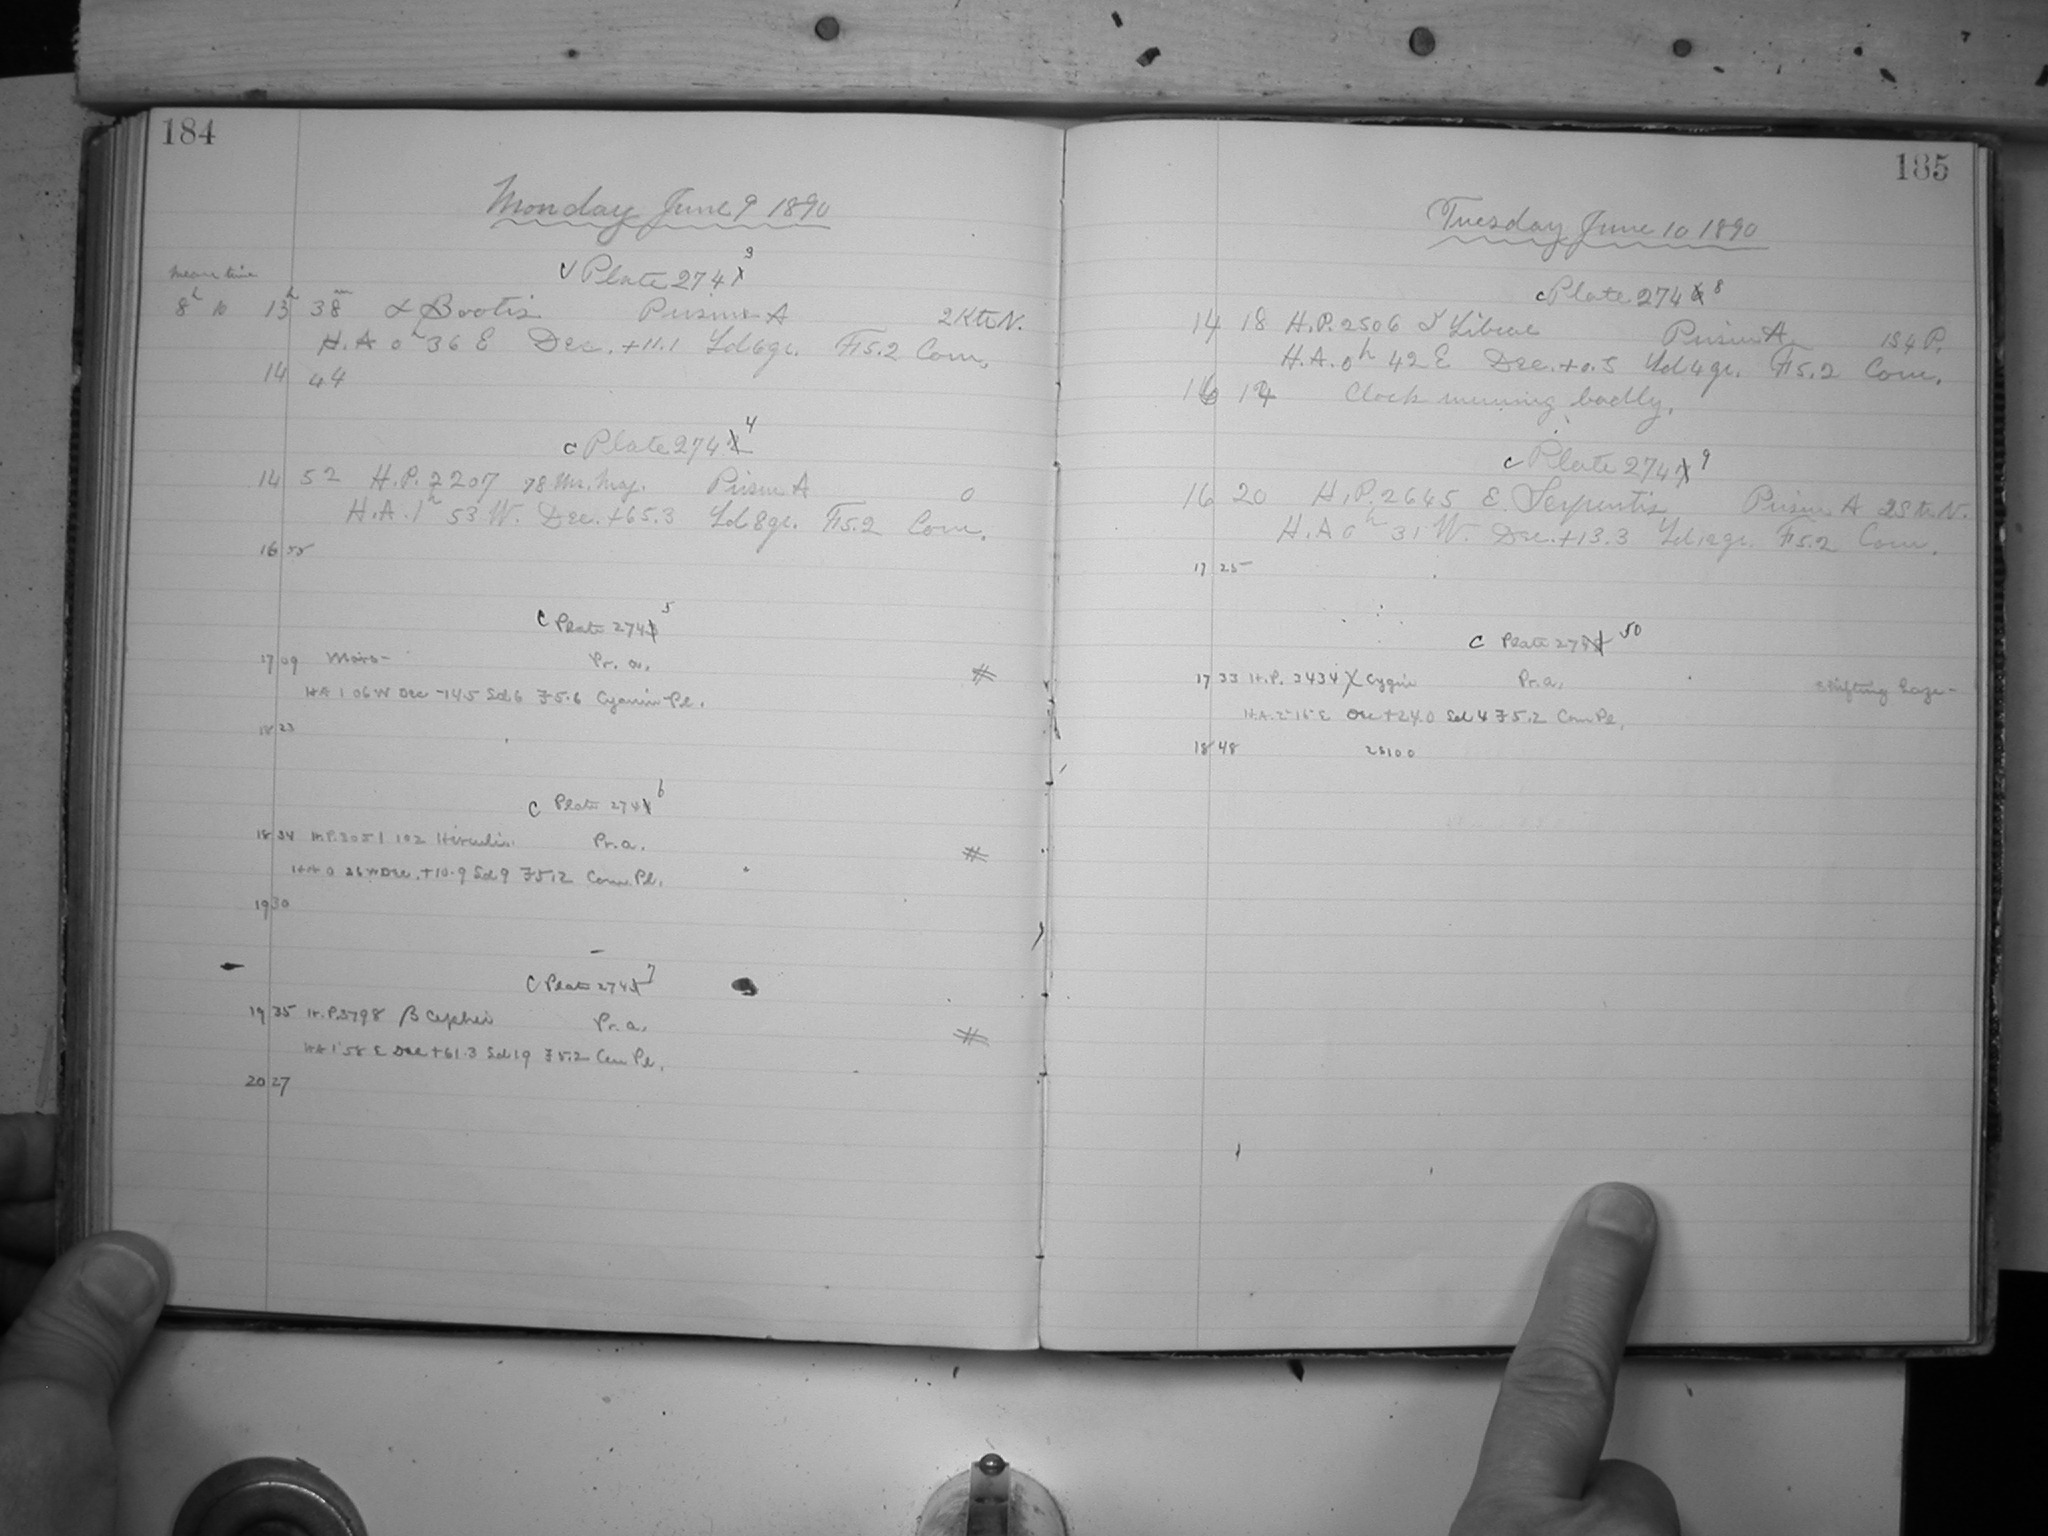 184
Monday June 9 1890
mean time
c Plate 2743
8h 10 13h 38m α Bootis Prism A 2K to N.
H.A 0h 36 E Dec. +11.1 Sd 6 gr. F15.2 Com.
14 44
c Plate 2744
14 52 H.P. 2207 78 Urs. Maj. Prism A 0
H.A. 1h 53 W. Dec. +65.3 Sd 8 gr. F15.2 Com.
16 55
c Plate 2745
17 09 Mars Pr. a. #
HA 1 06 W Dec -14.5 Sd 6 F5.6 Cyanin Pl.
18 23
c Plate 2746
18 34 H.P. 3051 102 Herculis Pr. a. #
HA 0 26 W Dec. +10.9 Sd 9 F5.2 Com Pl.
19 30
c Plate 2747
19 35 H.P. 3798 β Cephei Pr. a. #
HA 1 58 E Dec +61.3 Sd 19 F5.2 Com Pl.
20 27
185
Tuesday June 10 1890
c Plate 2748
14 18 H.P. 2506 Librae Prism A 1S4P.
H.A. 0h 42 E Dec. +0.5 Sd 4 gr. F15.2 Com.
16 14 Clock running badly.
c Plate 2749
16 20 H.P. 2645 ε Serpentis Prism A 2S to N.
H.A 0h 31 W. Dec. +13.3 Sd 12 gr. F15.2 Com.
17 25
c Plate 2750
17 33 H.P. 3434 χ Cygni Pr. a. Shifting haze
H.A. 2 15 E Dec +24.0 Sd 4 F5.2 Com Pl.
18 48 2S100